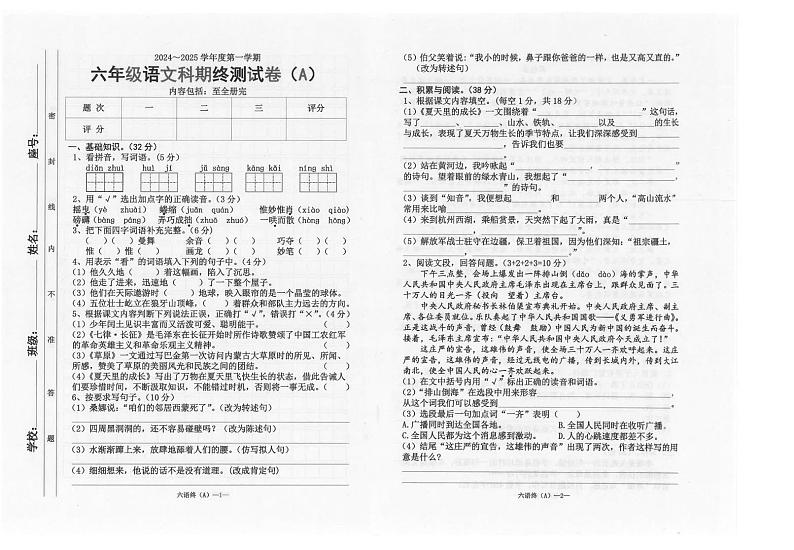 2024～2025 学年度第一学期
六年级语文科期终测试卷（A）
内容包括：至全册完
题 次 一 二 三 评分
评 分
座号：
姓名：
班级：
学校：
密
封
线
内
不
准
答
题
一、基础知识。（32 分）
1、看拼音，写词语。（5 分）
diǎn huì jí jū sàng kāng kǎi níng shì
2、用“√”选出加点字的正确读音。（3 分）
摇曳（yè zhuài） 蜷缩（juǎn quán） 惟妙惟肖（xiào qiào）
磅礴（bàng páng） 弄巧成拙（zhuō zhuó） 一哄而散（hòng hōng）
3、把下面四字词语补充完整。（6 分）
（ ）（ ）曼舞 余音（ ）（ ） 巧夺（ ）（ ）
惟（ ）惟（ ） 画龙（ ）（ ） 妙笔（ ）（ ）
4、用表示“看”的词语填入下列的句子中。（4 分）
（1）他久久地（ ）着这幅画，陷入了沉思。
（2）他走了进来，迅速地（ ）了一下整个屋子。
（3）他们在天际遨游时（ ）地球，映入眼帘的是一个晶莹的球体。
（4）五位壮士屹立在狼牙山顶峰，（ ）着群众和部队主力远去的方向。
5、根据课文内容判断下列说法正误，正确打“√”，错误打“×”。（4 分）
（1）少年闰土见识丰富而又活泼可爱、聪明能干。 （ ）
（2）《七律·长征》是毛泽东在长征开始时所作诗歌赞颂了中国工农红军
的革命英雄主义和革命乐观主义精神。 （ ）
（3）《草原》一文通过写巴金第一次访问内蒙古大草原时的所见、所闻、
所感，赞美了草原的美丽风光和民族之间的团结。 （ ）
（4）《夏天里的成长》写出了万物在夏天里飞快生长的状态，借此告诫人
们要珍惜时间，不断汲取知识，不能错过时机，否则将一事无成。（ ）
6、按要求写句子。（10 分）
（1）桑娜说：“咱们的邻居西蒙死了”。（改为转述句）
（2）四周黑洞洞的，还不容易碰壁吗？（改为陈述句）
（3）水渐渐蹿上来，放肆地舔着人们的腰。（仿写拟人句）
（4）细细想来，他说的话不是没有道理。（改成肯定句）
六语终（A）—1—
（5）伯父笑着说：“我小的时候，鼻子跟你爸爸的一样，也是又高又直的。”
（改为转述句）
二、积累与阅读。（38 分）
1、根据课文内容填空。（每空 1 分，共 18 分）
（1）《夏天里的成长》一文围绕着“ ”这句话，
写了 、 、山水、铁轨、 以及 的生长
与成长，表现了夏天万物生长的季节特点，让我们深深感受到
，告诉我们也要
。
（2）站在黄河边，我吟咏起“ ， ”
的诗句。望着眼前的绿水青山，我想起了“ ，
”的诗句。
（3）谈到“知音”，我便想起 和 两个人，“高山流水”
常用来比喻 。
（4）来到杭州西湖，乘船赏景，天突然下起了大雨，真是“
， ”。
（5）解放军战士驻守在边疆，保卫着祖国，因为他们深知：“祖宗疆土，
， 。”
2、阅读文段，回答问题。（3+2+2+3=10 分）
下午三点整，会场上爆发出一阵排山倒（dǎo dào）海的掌声，中华
人民共和国中央人民政府主席毛泽东出现在主席台上，跟群众见面了。三
十万人的目光一齐（投向 望着）主席台。
中央人民政府秘书长林伯渠宣布典礼开始。中央人民政府主席、副主
席、各位委员就位。乐队奏起了中华人民共和国国歌——《义勇军进行曲》。
正是这战斗的声音，曾经（鼓舞 鼓励）中国人民为新中国的诞生而奋斗。
接着，毛泽东主席宣布：“中华人民共和国中央人民政府今天成立了！”
这庄严的宣告，这雄伟的声音，使全场三十万人一齐欢呼起来。这庄
严的宣告，这雄伟的声音，经过无线电的广播，传到长城内外，传到大江
南北，使全中国人民的心一齐欢跃起来。
（1）在文中括号内用“√”标出正确的读音和词语。
（2）“排山倒海”在选段中用来形容 ，
从这个词我们可以感受到 。
（3）选段最后一句加点词“一齐”表明（ ）
A.广播同时到达全国各地。 B.全国人民同时在收听广播。
C.全国人民都为这个消息感到激动。 D.人的心跳速度都差不多。
（4）结尾“这庄严的宣告，这雄伟的声音”出现了两次，作者这样写的用
意是什么？
六语终（A）—2—